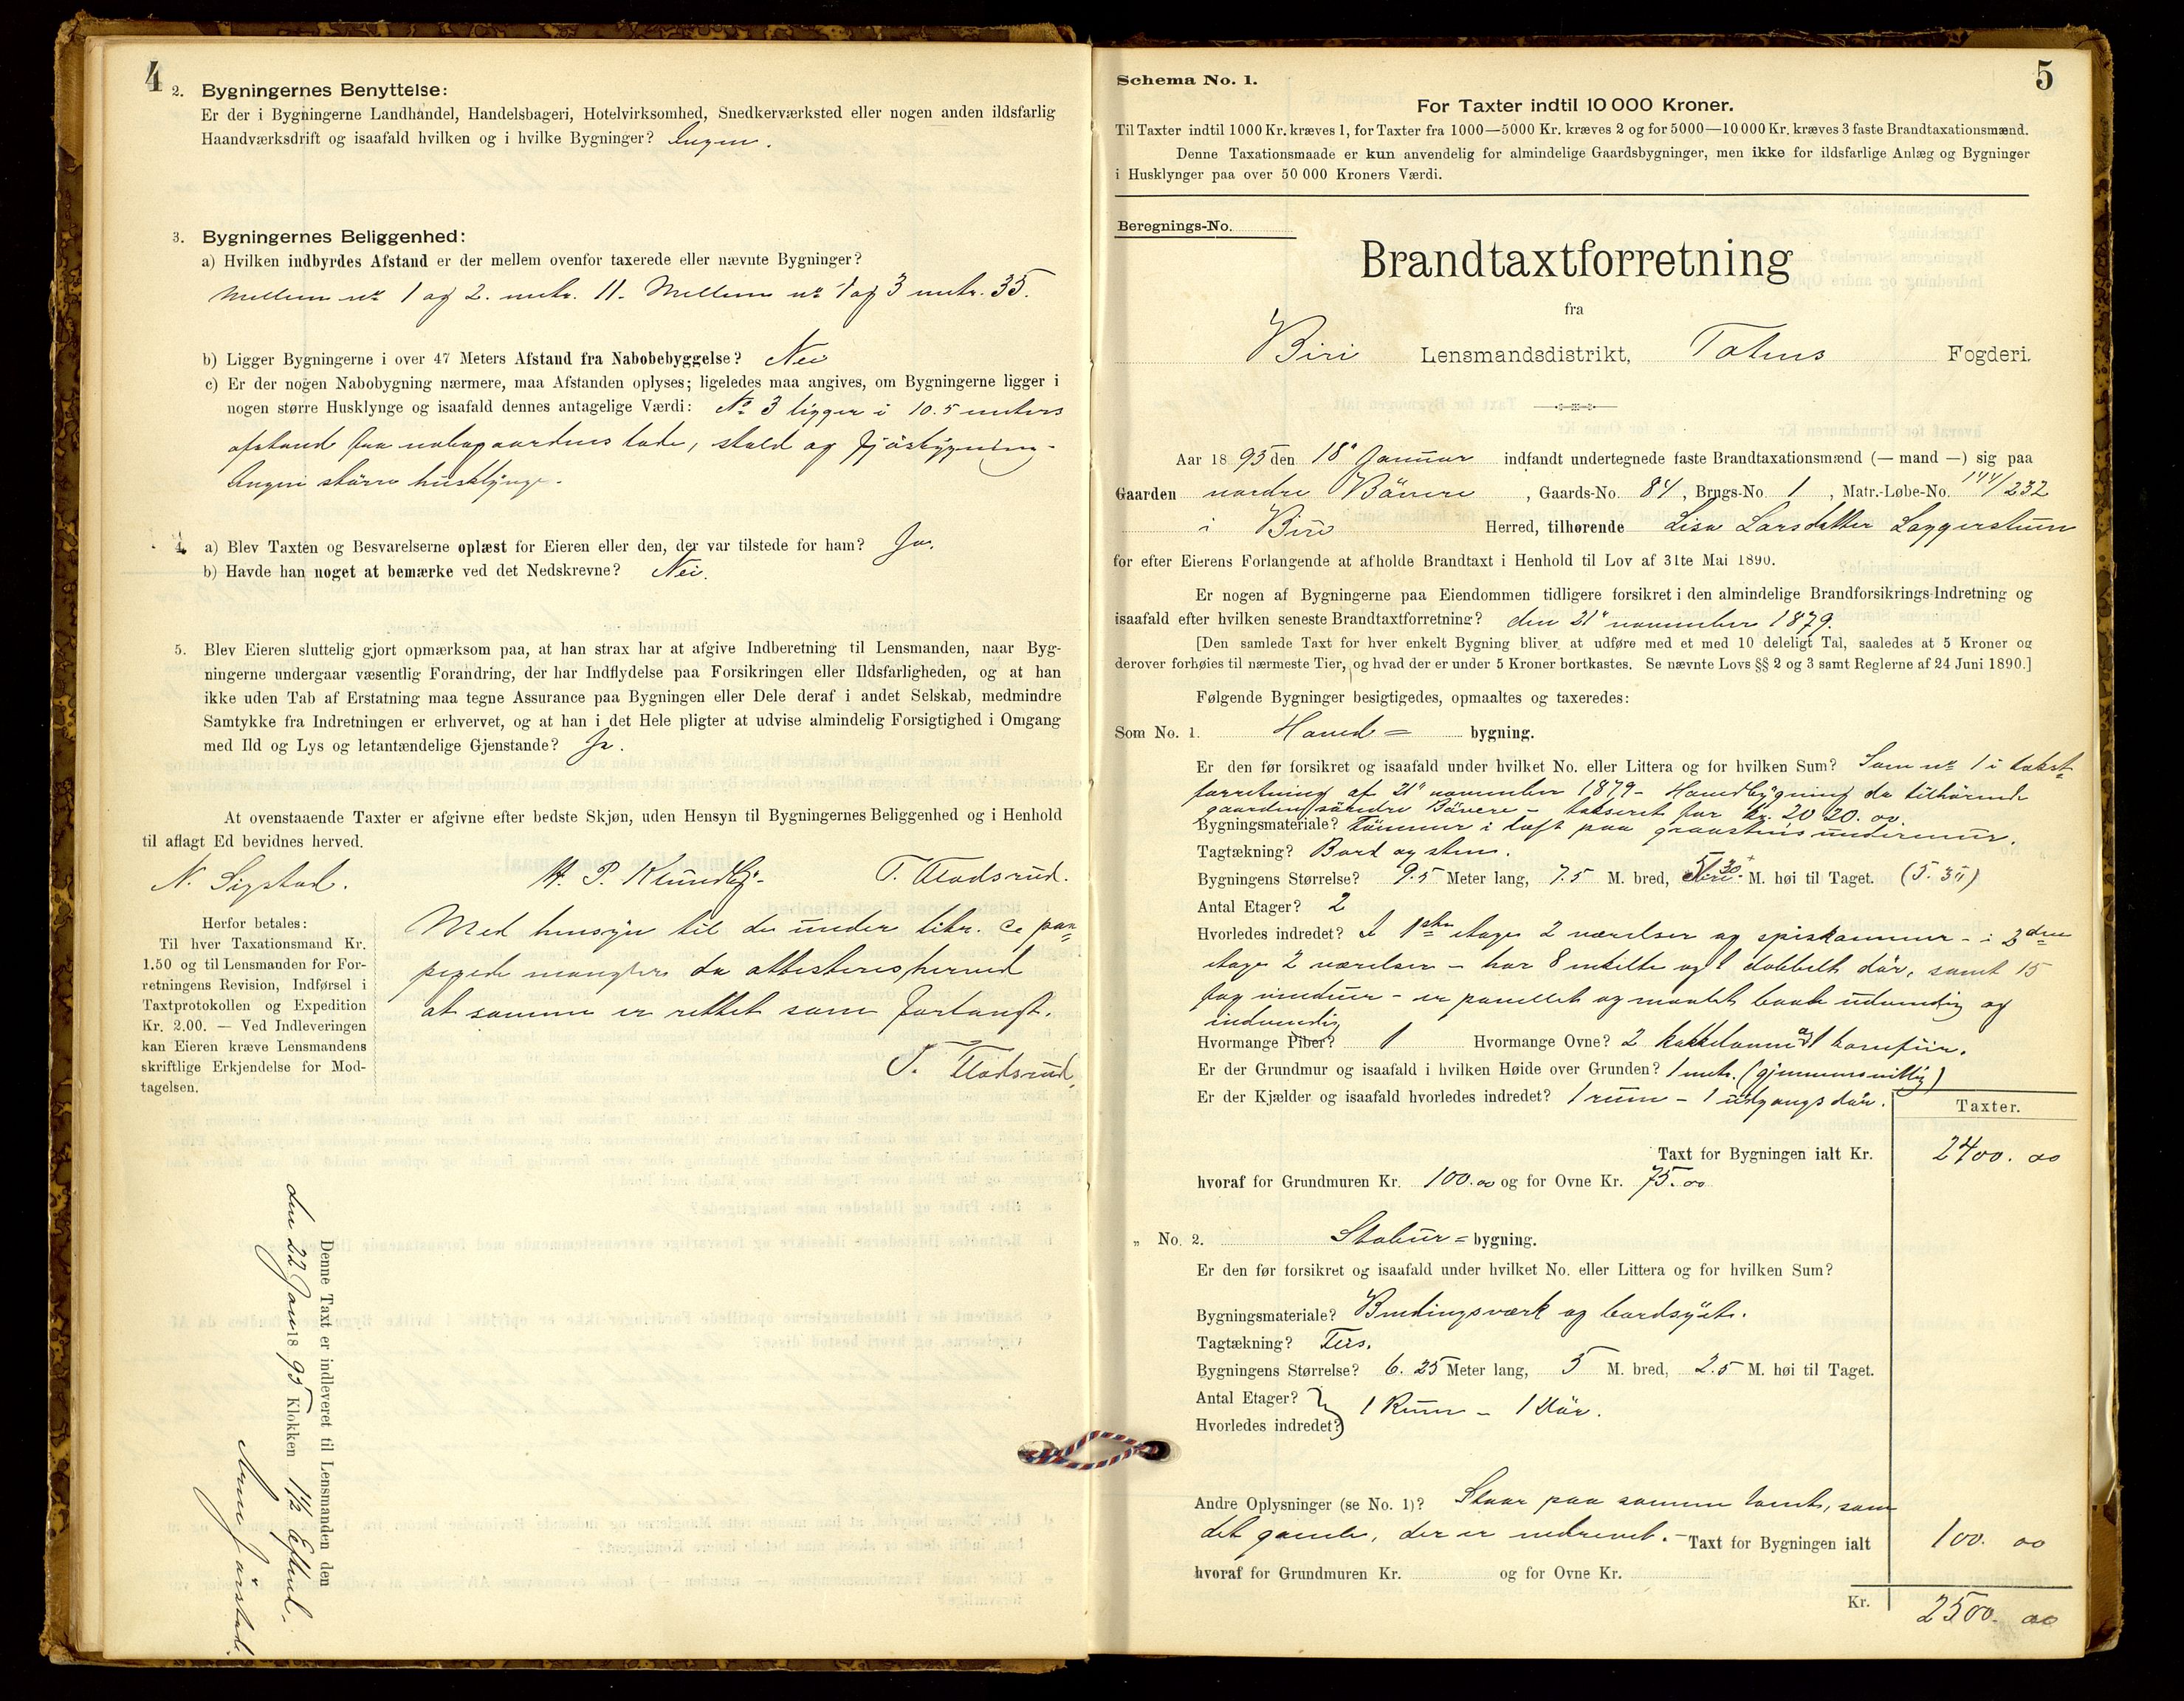 4
2. Bygningernes Benyttelse:
Er der i Bygningerne Landhandel, Handelsbageri, Hotelvirksomhed, Snedkerværksted eller nogen anden ildsfarlig
Haandværksdrift og isaafald hvilken og i hvilke Bygninger? Ingen.
3. Bygningernes Beliggenhed:
a) Hvilken indbyrdes Afstand er der mellem ovenfor taxerede eller nævnte Bygninger?
Mellem no 1 og 2. metr. 11. Mellem no 1 og 3 metr. 35.
b) Ligger Bygningerne i over 47 Meters Afstand fra Nabobebyggelse? Nei
c) Er der nogen Nabobygning nærmere, maa Afstanden oplyses; ligeledes maa angives, om Bygningerne ligger i
nogen større Husklynge og isaafald dennes antagelige Værdi: No 3 ligger i 10.5 meters
afstand fra nabogaardens lade, stald og fjösbygning -
Ingen större husklynge.
4. a) Blev Taxten og Besvarelserne oplæst for Eieren eller den, der var tilstede for ham? Ja.
b) Havde han noget at bemærke ved det Nedskrevne? Nei.
5. Blev Eieren sluttelig gjort opmærksom paa, at han strax har at afgive Indberetning til Lensmanden, naar Byg-
ningerne undergaar væsentlig Forandring, der har Indflydelse paa Forsikringen eller Ildsfarligheden, og at han
ikke uden Tab af Erstatning maa tegne Assurance paa Bygningen eller Dele deraf i andet Selskab, medmindre
Samtykke fra Indretningen er erhvervet, og at han i det Hele pligter at udvise almindelig Forsigtighed i Omgang
med Ild og Lys og letantændelige Gjenstande? Ja.
At ovenstaaende Taxter er afgivne efter bedste Skjøn, uden Hensyn til Bygningernes Beliggenhed og i Henhold
til aflagt Ed bevidnes herved.
N. Sigstad. H. P. Klundby. T. Fladsrud.
Herfor betales:
Til hver Taxationsmand Kr.
1.50 og til Lensmanden for For-
retningens Revision, Indførsel i
Taxtprotokollen og Expedition
Kr. 2.00. — Ved Indleveringen
kan Eieren kræve Lensmandens
skriftlige Erkjendelse for Mod-
tagelsen.
Med hensyn til de under litr. c paa-
pegede mangler da attesteres herved
at samme er rettet som forlangt.
T. Fladsrud.
Denne Taxt er indleveret til Lensmanden den
den 22 Jan 1895 Klokken 1 1/2 Efterm.
5
Schema No. 1.
For Taxter indtil 10 000 Kroner.
Til Taxter indtil 1000 Kr. kræves 1, for Taxter fra 1000—5000 Kr. kræves 2 og for 5000—10 000 Kr. kræves 3 faste Brandtaxationsmænd.
Denne Taxationsmaade er kun anvendelig for almindelige Gaardsbygninger, men ikke for ildsfarlige Anlæg og Bygninger
i Husklynger paa over 50 000 Kroners Værdi.
Beregnings-No.
Brandtaxtforretning
fra
Biri Lensmandsdistrikt, Totens Fogderi.
Aar 1895 den 18" Januar indfandt undertegnede faste Brandtaxationsmænd (— mand —) sig paa
Gaarden nordre Bövere, Gaards-No. 84, Brugs-No. 1, Matr.-Løbe-No. 144/232
i Biri Herred, tilhørende Lisa Larsdatter Laggerstuen
for efter Eierens Forlangende at afholde Brandtaxt i Henhold til Lov af 31te Mai 1890.
Er nogen af Bygningerne paa Eiendommen tidligere forsikret i den almindelige Brandforsikrings-Indretning og
isaafald efter hvilken seneste Brandtaxtforretning? den 21" november 1879.
[Den samlede Taxt for hver enkelt Bygning bliver at udføre med et med 10 deleligt Tal, saaledes at 5 Kroner og
derover forhøies til nærmeste Tier, og hvad der er under 5 Kroner bortkastes. Se nævnte Lovs §§ 2 og 3 samt Reglerne af 24 Juni 1890.]
Følgende Bygninger besigtigedes, opmaaltes og taxeredes:
Som No. 1. Hoved = bygning.
Er den før forsikret og isaafald under hvilket No. eller Littera og for hvilken Sum? Som no 1 i takst-
forretning af 21" november 1879 - Hovedbygning da tilhörende
gaarden söndre Bövere - takseret for Kr. 2020.00.
Bygningsmateriale? Tömmer i laft paa graastens undermur.
Tagtækning? Bord og sten.
Bygningens Størrelse? 9.5 Meter lang, 7.5 M. bred, 5.30 M. høi til Taget. (5.30)
Antal Etager? 2
Hvorledes indredet? I 1ste etage 2 værelser og spiskammer - i 2den
etage 2 værelser - har 8 enkelte og 1 dobbelt dör, samt 15
fag vinduer - er panellet og maalet baade udvendig og
indvendig
Hvormange Piber? 1 Hvormange Ovne? 2 kakkelovne og 1 komfur.
Er der Grundmur og isaafald i hvilken Høide over Grunden? 1 metr. (gjennemsnitlig)
Er der Kjælder og isaafald hvorledes indredet? 1 rum - 1 udgangsdör.
Taxter.
Taxt for Bygningen ialt Kr. 2400. 00
hvoraf for Grundmuren Kr. 100.00 og for Ovne Kr. 75.00
„ No. 2. Stabur = bygning.
Er den før forsikret og isaafald under hvilket No. eller Littera og for hvilken Sum?
Bygningsmateriale? Bindingsværk og bordsyet.
Tagtækning? Flis.
Bygningens Størrelse? 6.25 Meter lang, 5 M. bred, 2.5 M. høi til Taget.
Antal Etager?
Hvorledes indredet? 1 Rum - 1 Dör.
Andre Oplysninger (se No. 1)? Staar paa samme tomt, som
det gamle, der er nedrevet. - Taxt for Bygningen ialt 100. 00
hvoraf for Grundmuren Kr. og for Ovne Kr.
Kr. 2500. 00